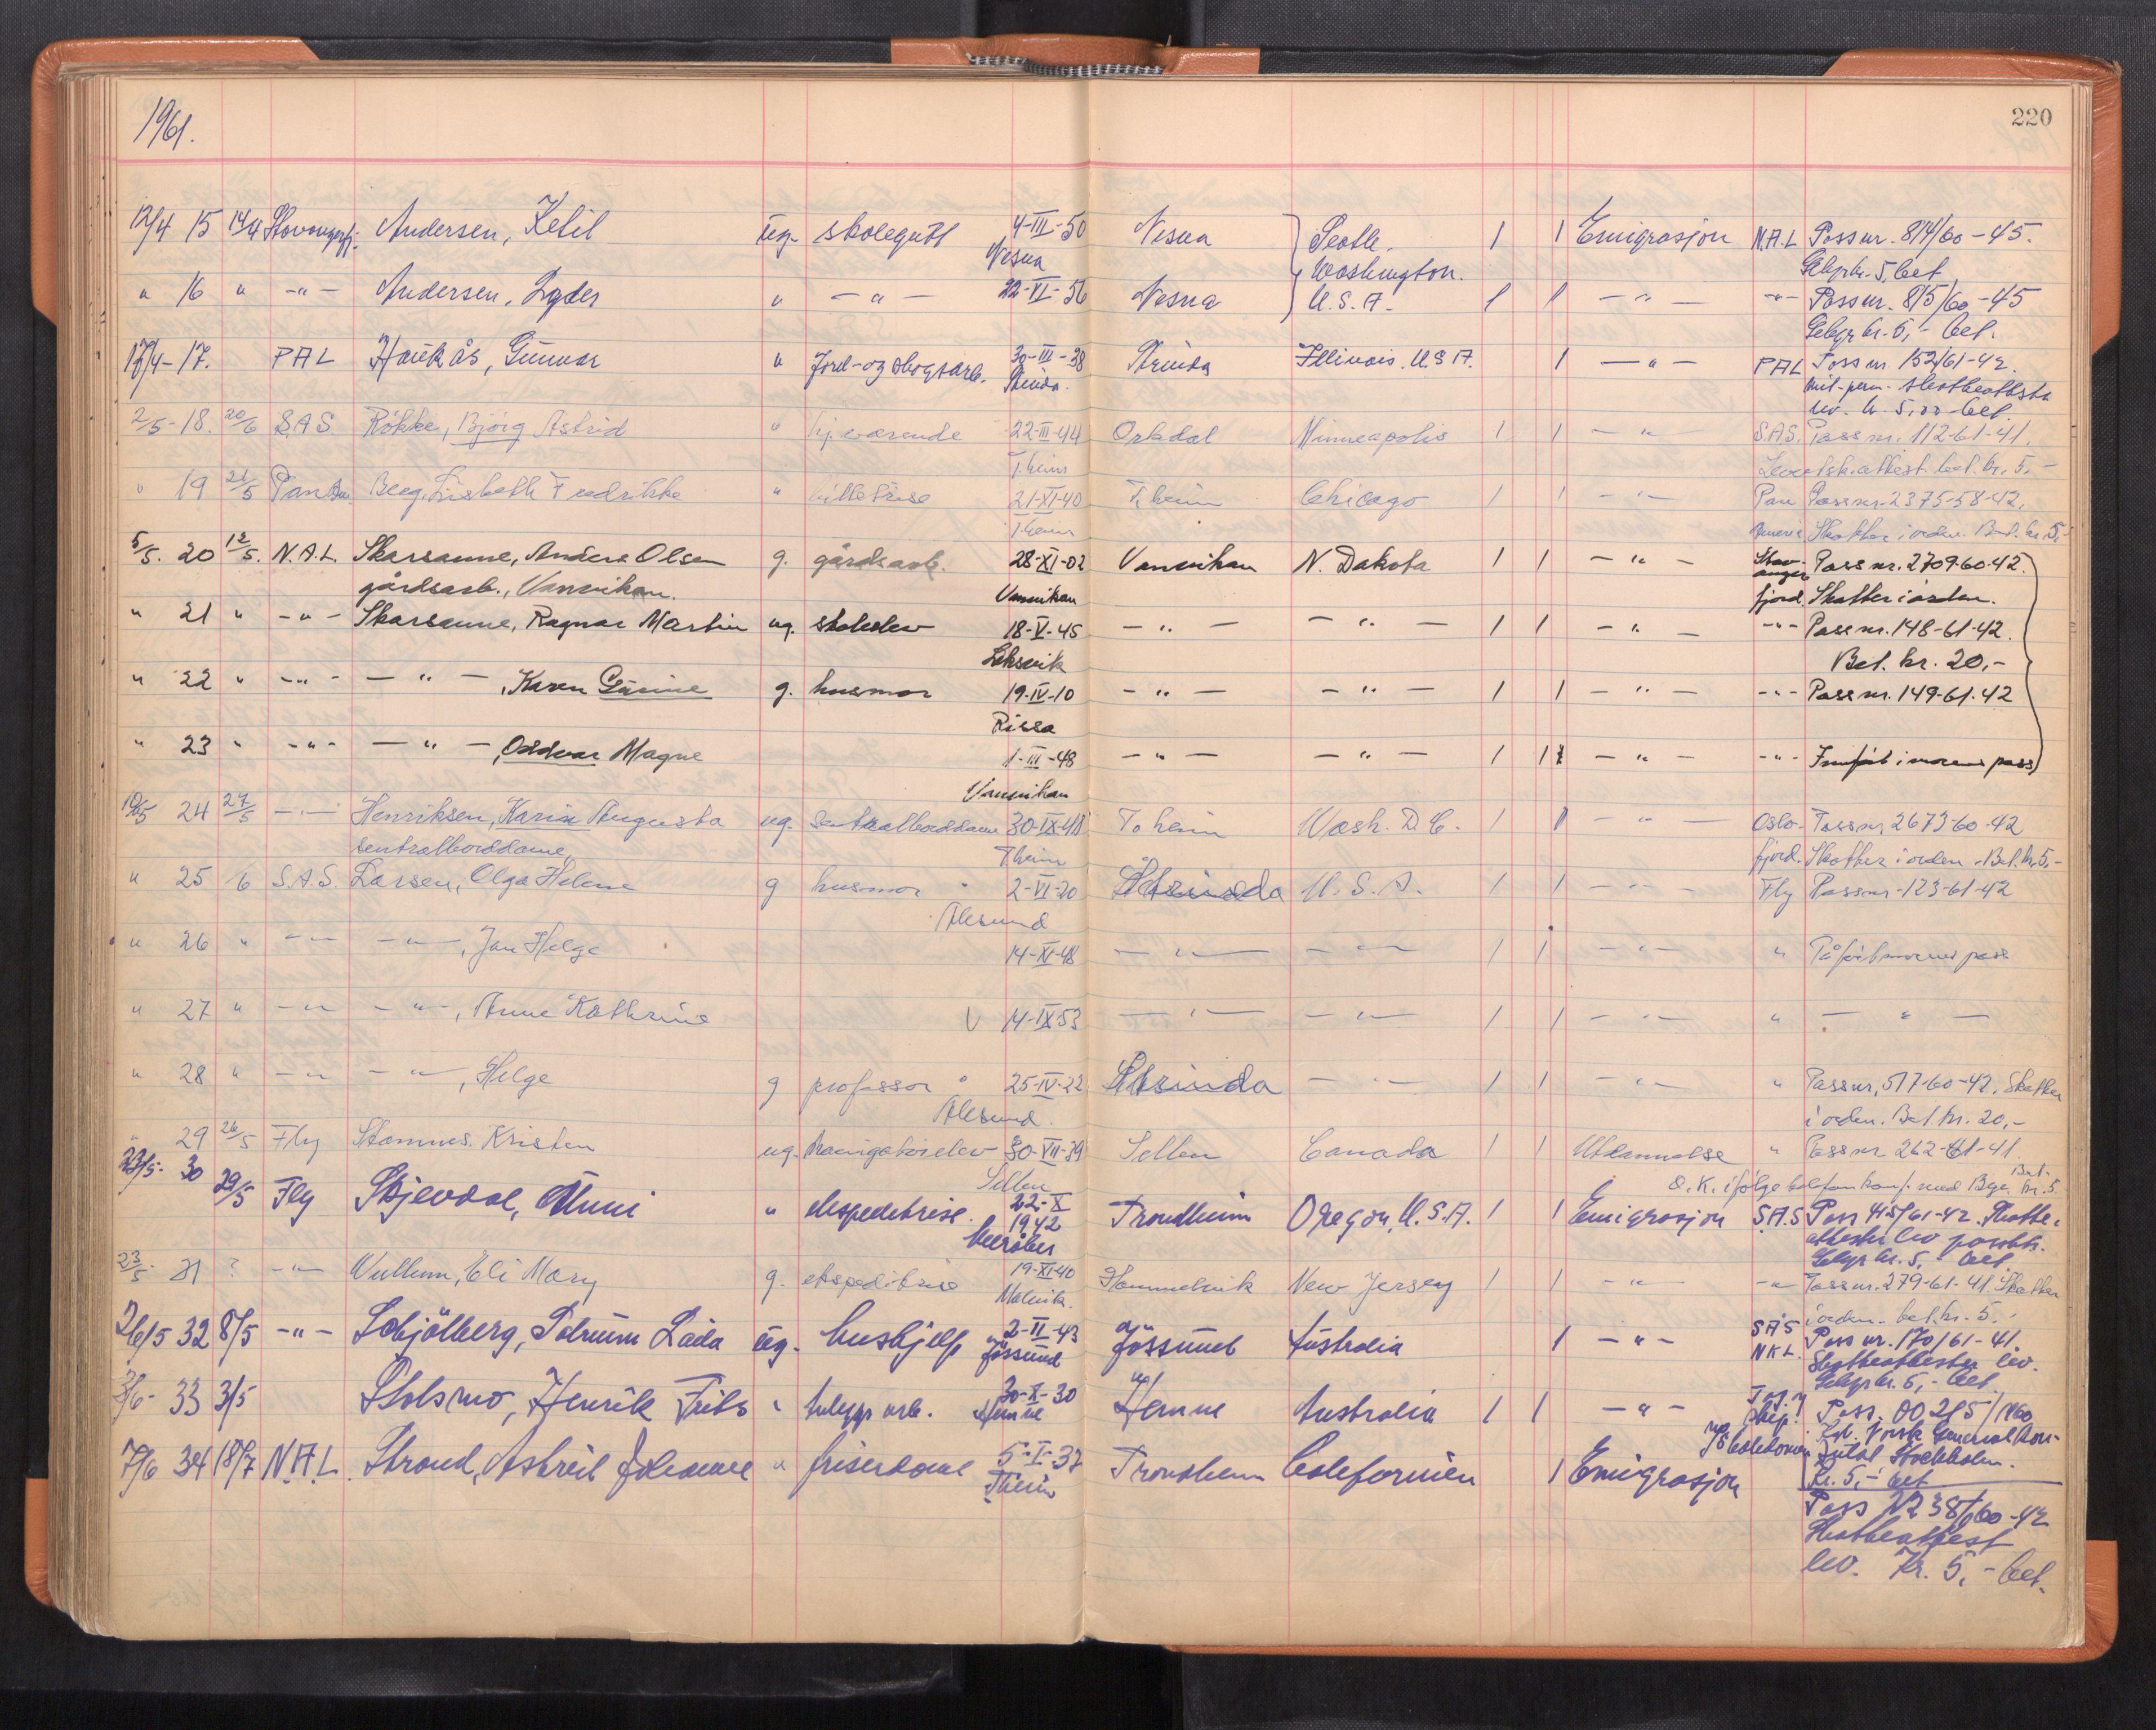 1961.
220
12/4 15 14/4 Stavangerfj. Andersen, Ketil ug. skolegutt 4-III-50 Nesna Seatle. 1 1 Emigrasjon N.A.L Passnr. 814/60-45.
Nesna Washington. Gebyr kr. 5, bet
" 16 " -"- Andersen, " -"- 22-VI-56 Nesna U.S.A. 1 1 -"- -"- Passnr. 815/60-45
Gebyr kr. 5,- bet.
17/4-17. PAL Haukås, Gunnar " Jord- og skogsarb. 30-III-38 Strinda Illinois. U.S.A. 1 -"- PAL Passnr. 152/61-42.
Strinda. mil. perm. skatteattest
lev. kr. 5,00 bet.
2/5-18. 20/6 S.A.S. Røkke, Bjørg Astrid " hj.værende 22-III-44 Orkdal Minneapolis 1 1 -"- S.A.S. Pass nr. 112-61-41.
T.heim Levert sk.attest. bet. kr. 5.-
" 19 21/5 Pan Am Berg, Lisbeth Fredrikke " 21-XI-40 T.heim Chicago 1 1 -"- Pan Pass nr. 2375-58-42.
T.heim Skatter i orden. Bet. kr. 5,-
5/5. 20 12/5. N.A.L. Skarsaune, Anders Olsen g. gårdsarb. 28-XI-02 Vanvikan N. Dakota 1 1 -"- Stavanger Pass nr. 2709-60-42.
gårdsarb., Vanvikan. Vanvikan fjord. Skatter i orden.
" 21 " -"- Skarsaune, Ragnar Martin ug. skoleelev 18-V-45 -"- -"- 1 1 -"- -"- Pass nr. 148-61-42.
Leksvik Bet. kr. 20,-
" 22 " -"- -"-, Karen Gusine g. husmor 19-IV-10 -"- -"- 1 1 -"- -"- Pass nr. 149-61-42
Rissa
" 23 " -"- -"-, Oddvar Magne 1-III-48 -"- -"- 1 1 -"- -"- Innført i morens pass
Vanvikan
10/5 24 27/5 -"- Henriksen, Karin Augusta ug. sentralborddame 30-IX-41 T.heim Wash. D.C. 1 1 -"- Oslo- Pass nr 2673-60-42
sentralborddame T.heim fjord. Skatter i orden. Bet. kr. 5,-
" 25 6 S.A.S. Larsen, Olga Helene g husmor 2-VI-20 Strinda U.S.A. 1 1 -"- Fly Passnr. 123-61-42
Ålesund
" 26 " -"- -"-, Jan Helge 14-XI-48 -"- -"- 1 1 -"- " Påført morens pass
" 27 " -"- -"-, Anne Kathrine 14-IX-53 -"- -"- 1 1 -"- " -"-
" 28 " -"- -"-, Helge g professor 25-IV-22 Strinda -"- 1 1 -"- " Passnr. 517-60-42. Skatter
Ålesund. i orden. Bet. kr. 20,-
" 29 26/5 Fly Stamnes. Kristen ug. Navigatørelev 30-VII-39 Canada 1 1 Utdannelse " Pass nr 262-61-41.
O.K. ifølge telefonkonf. med Bet. kr. 5.
23/5- 30 29/5 Fly Skjevdal, Unni " ekspeditrise. 22-X Trondheim Oregon, U.S.A. 1 1 Emigrasjon S.A.S Pass 415/61-42. Skatte-
1942 attester lev
Meråker Gebyr kr. 5,- bet.
23/5- 31 ? -"- Wullum, Eli Mary g. ekspeditrise 19-XI-40 Hommelvik New Jersey 1 1 -"- -"- Passnr. 279-61-41. Skatter
Malvik. i orden. bet. kr. 5.-
26/5 32 8/5 -"- Schjölberg, Laila ug. hushjelp 2-II-43 Jössund Australia 1 -"- SAS Pass nr. 170/61-41.
Jössund NKL. Skatteattester lev.
Gebyr kr. 5,- bet.
3/6- 33 3/5 Stolsmo, Henrik Frits " Anlegg arb. 30-X-30 Hemne Australia 1 1 -"- Tog og Pass. 00 215/1960
Hemne skip. Norsk General Kon-
sulat Stockholm.
Kr. 5,- bet
7/6 34 18/7 N.A.L. Strand, Astrid Johanne " friserdame 5-I-37 Trondheim Californien 1 Emigrasjon
T.heim
Pass N2 38/60-42
Skatteattest
lev. Kr. 5,- bet.